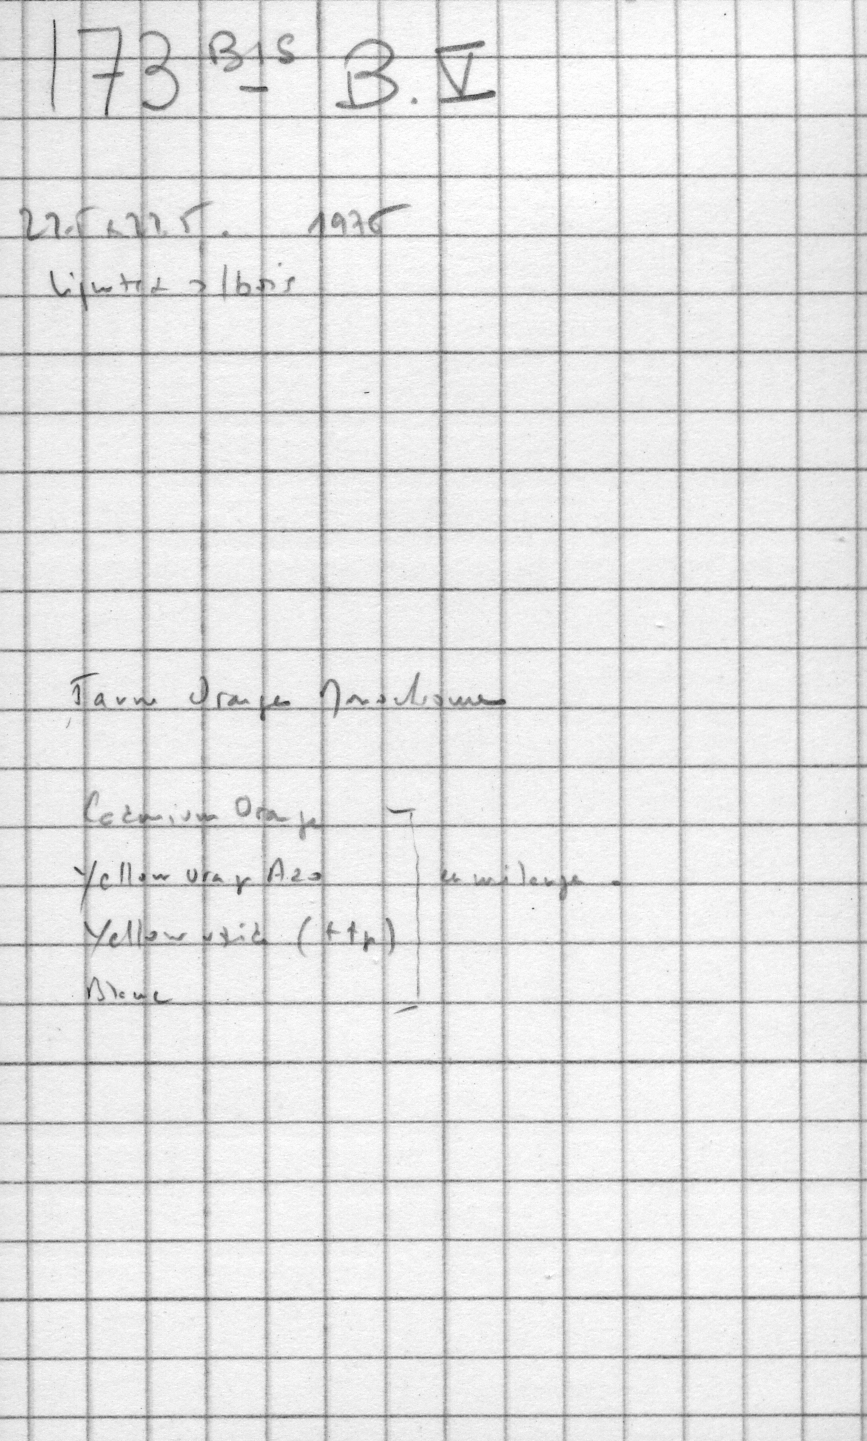 173 BIS B. V
22.5 x 22.5. 1976
Liquitex s/bois
Jaune Orange Monochrome
Cadmium Orange
Yellow Orange Azo
Yellow oxide
Blanc
en mélange.